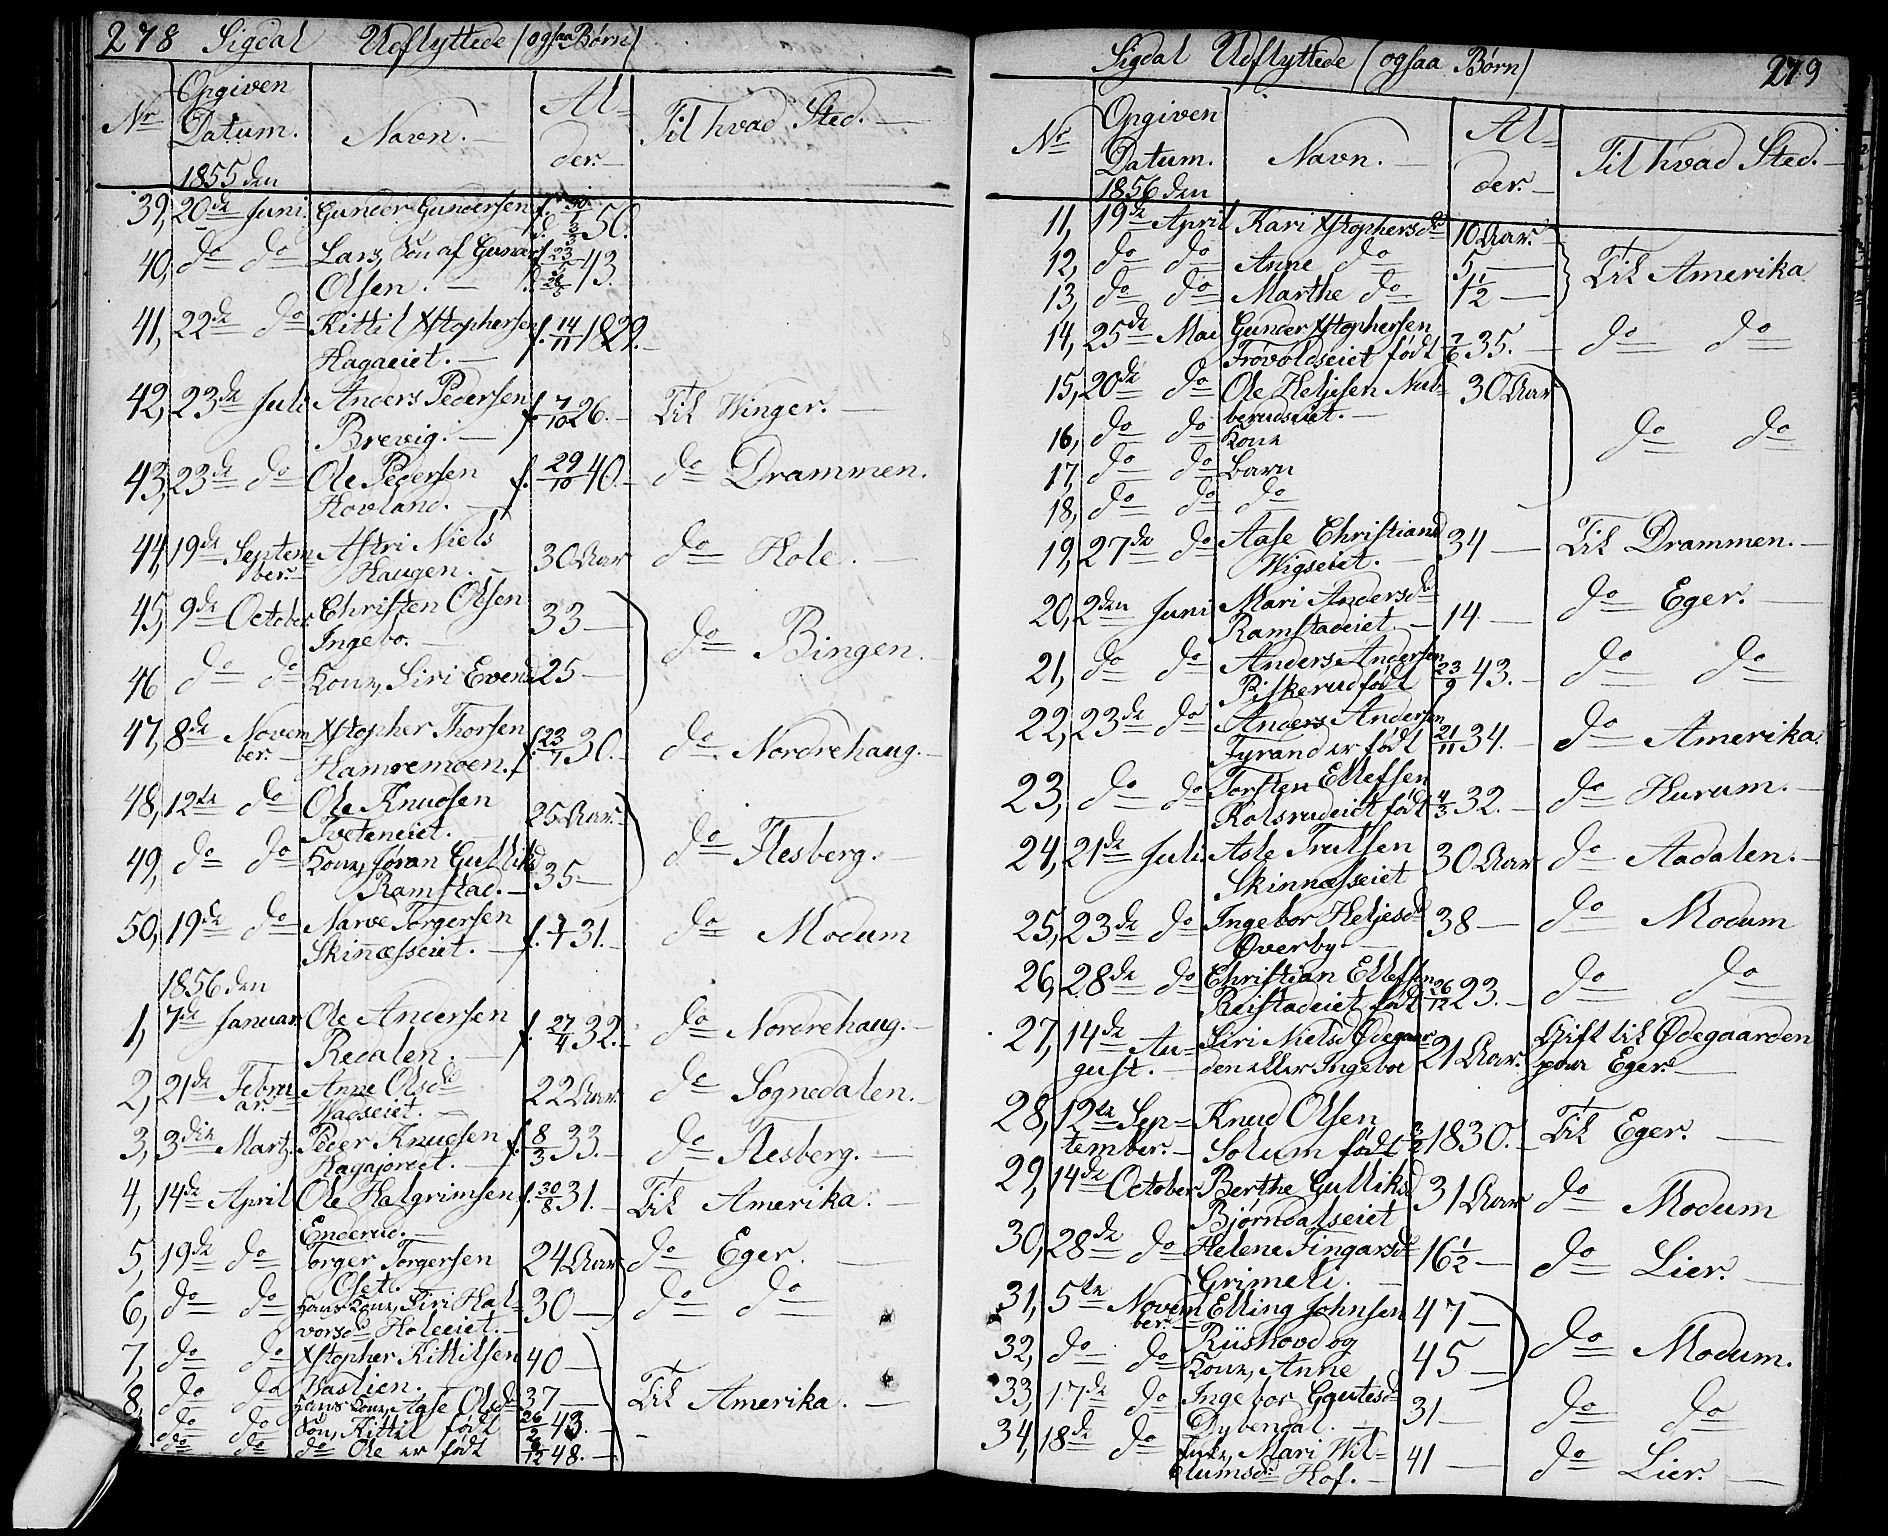 278 Sigdal Udflyttede (ogsaa Børn)
Nr
Opgiven
Datum.
1855 den
Navn.
Al-
der.
Til hvad Sted.
39, 20de Juni Gunder Gundersen f. 50.
40, do do Lars, Søn af Gunder f. 23/5 43.
Olsen.
41, 22de do Kittil Xstophersen f. 14/11 1829.
Hagaeiet.
42, 23de Juli Anders Pedersen f. 7/10 26. Til Winger.
Brevig.
43, 23de do Ole Pedersen f. 29/10 40. do Drammen.
Hovland.
44, 19de Septem Astri Niels 30 Aar do Hole.
ber. Haugen.
45, 9de October Christen Olsen 33 do Bingen.
Ingebo.
46 do do Kone, Siri Evensd 25
47, 8de Novem Xstopher Thorsen f. 23/7 30. do Nordrehaug.
ber. Hamremoen.
48, 12te do Ole Knudsen 25 Aar. do Flesberg.
Tveteneiet.
49, do do Kone, Jøran Gulliksd 35
Ramstad.
50, 19de do Narve Torgersen f. 31. do Modum
Skinnæsseiet.
1856 den
1, 7de Januar Ole Andersen f. 27/4 32. do Nordrehaug.
Redalen.
2, 21de Febru Anne Olsdr 22 Aar do Sognedalen.
ar. Wadseiet.
3, 3die Martz Peder Knudsen f. 8/3 33. do Flesberg.
4, 14de April Ole Halgrimsen f. 30/8 31. Til Amerika.
Enderud.
5, 19de do Torger Torgersen 24 Aar do Eger.
Olset.
6, do do Hans Kone, Siri Hal- 30 do do
vorsd Holeeiet.
7, do do Xstopher Kittilsen 40 Til Amerika.
Vastien.
8, do do hans Kone, Aase Olsd 37
do do Søn, Kittil født 26/2 43.
do do do Ole er født 48.
Sigdal Udflyttede (ogsaa Børn) 279
Nr
Opgiven
Datum.
1856 den
Navn.
Al-
der.
Til hvad Sted.
11, 19de April Kari Xstophersdr 10 Aar. Til Amerika
12, do do Anne do 5
13, do do Marthe do 1 1/2
14, 25de Mai Gunder Xstophersen do do
Frøvoldseiet født 7/6 35.
15, 20de do Ole Heljesen Nub- 30 Aar do do
berudseiet.
16, do do Kone
17, do do Barn
18, do do do
19, 27de do Aase Christiansd 34 Til Drammen.
Wigseiet.
20, 2den Juni Mari Andersdr 14 do Eger.
Ramstadeiet
21, do do Anders Andersen do do
Piskerud født 23/9 43.
22, 23de do Anders Andersen do Amerika.
Tyrand er født 21/11 34.
23, do do Torsten Ellefsen do Hurum.
Kolsrudeiet født 4/3 32.
24, 21de Juli Asle Trulsen 30 Aar do Aadalen.
Skinnæsseiet
25, 23de do Ingebor Heljesd 38 do Modum
Overby.
26, 28de do Christian Ellefsen do do
Reistadeiet født 26/12 23.
27, 14de Au- Siri Nielsd Ødegaar- 21 Aar. Gift til Ødegaarden
gust. den eller Ingeboe paa Eger.
28, 12te Sep- Knud Olsen
tember. Solum født 3/2 1830. Til Eger.
29, 14de October Berthe Gulliksd 31 Aar do Modum
Bjørndalseiet
30, 28de do Helene Fingarsdr 16 1/2 do Lier.
Grimeli.
31, 5te Novem Elling Johnsen 47 do Modum.
ber. Riishovd og
32, do do Kone, Anne 45
33, 17de do Ingebor Gautesd 31 do do
Dybendal.
34, 18de do Enke, Mari Wil- 41 do Lier.
lumsdr Hof.